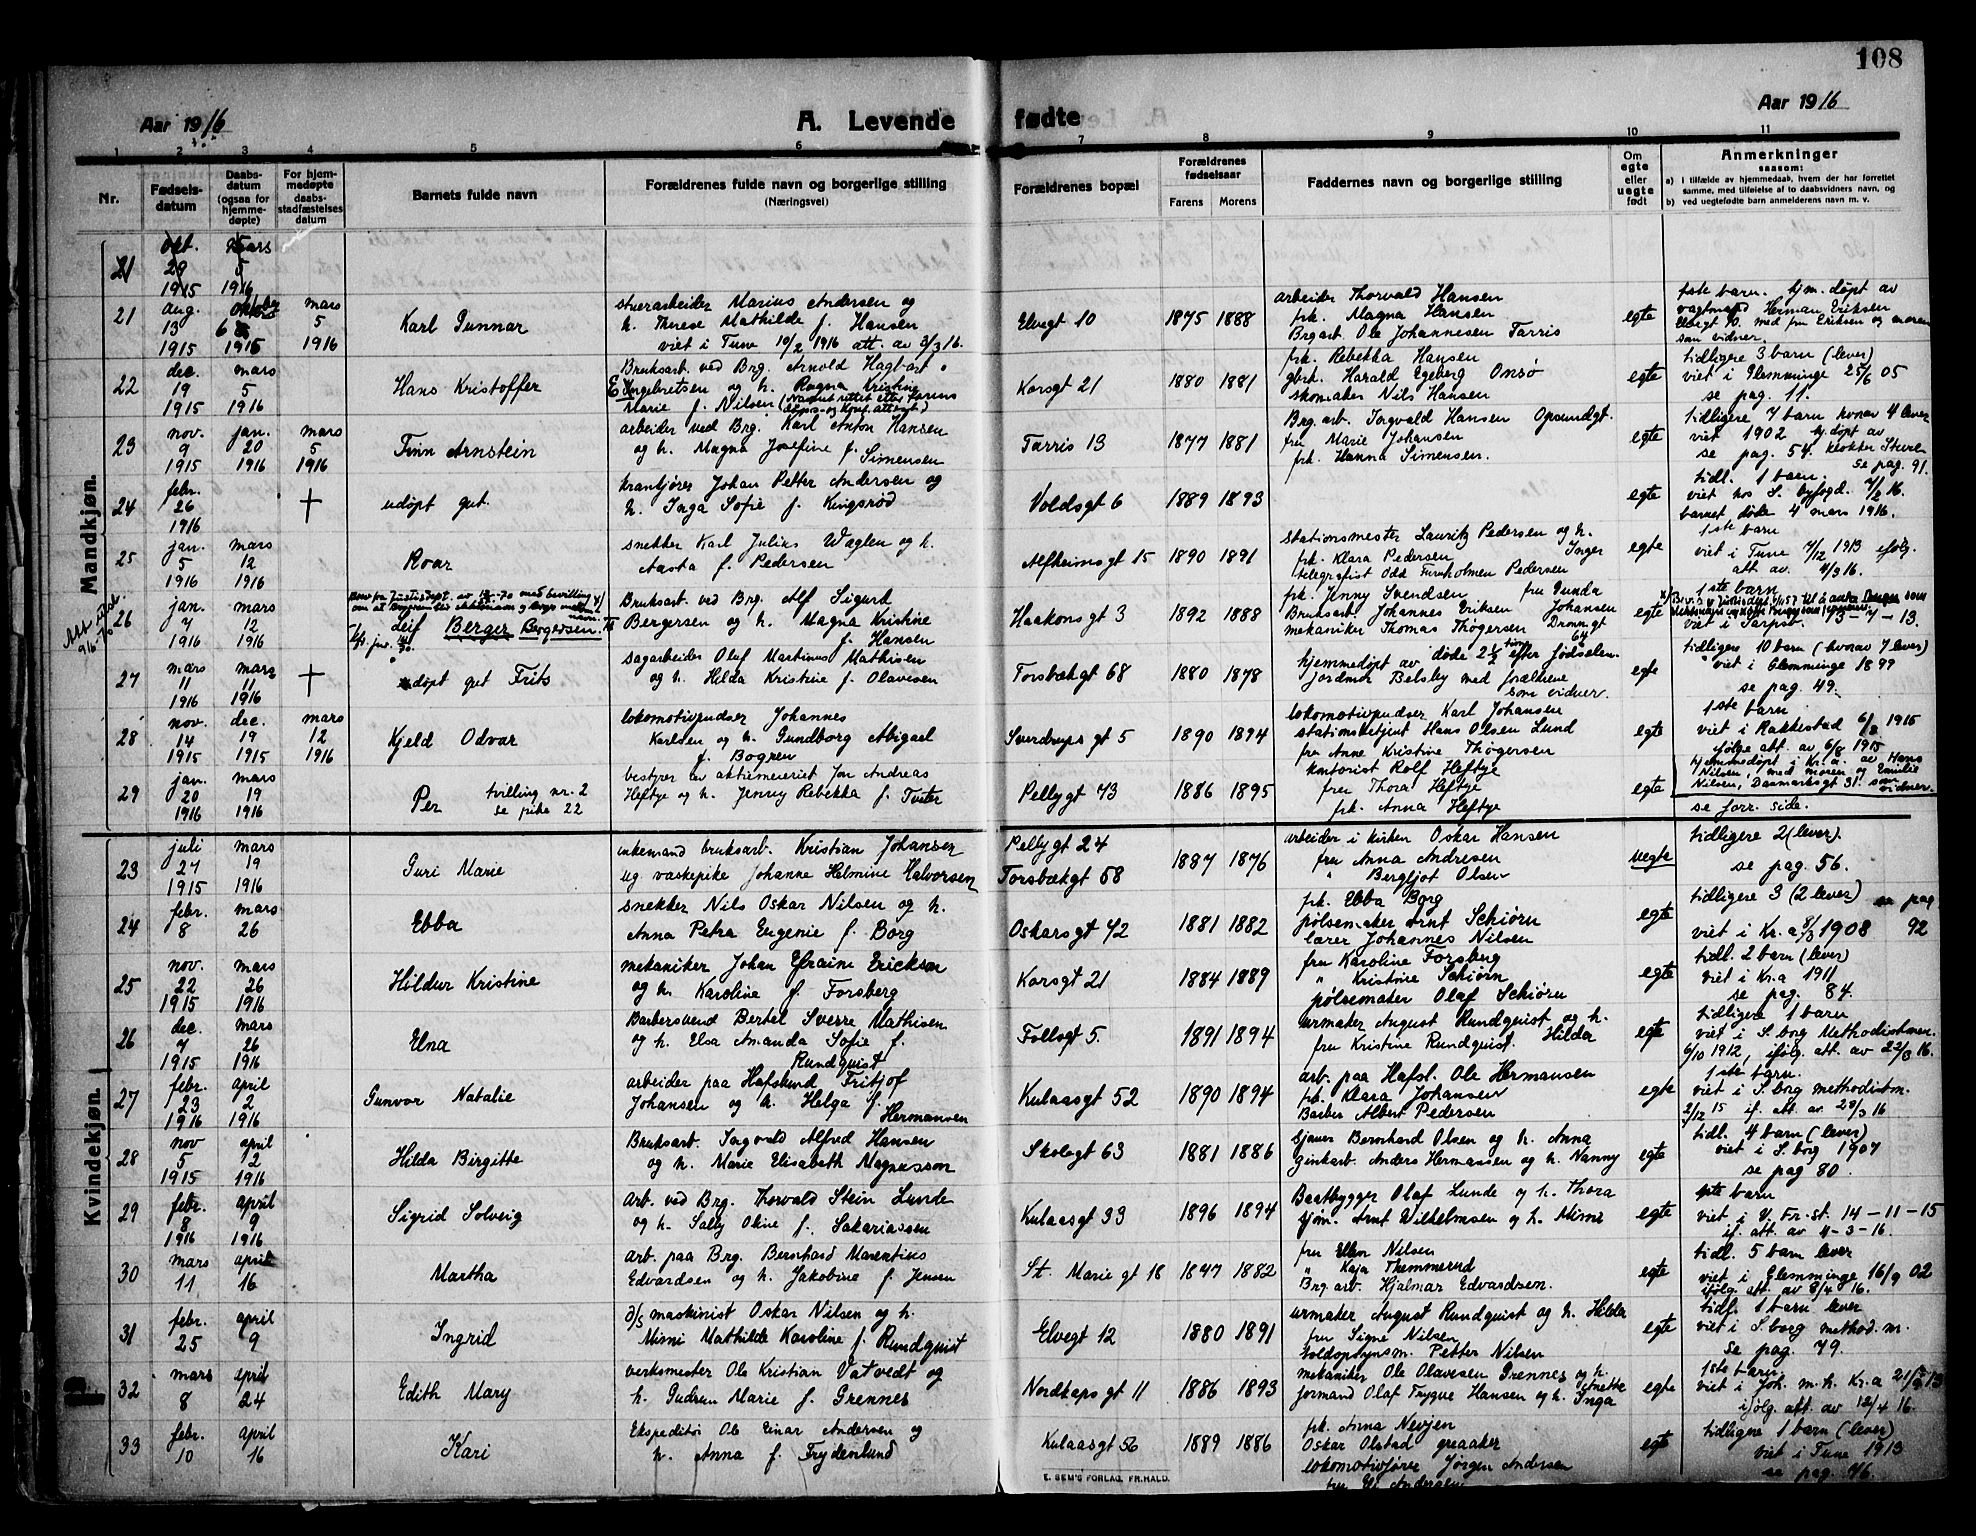 108
Aar 1916
A. Levende fødte
Aar 1916
1 2 3 4 5 6 7 8 9 10 11
Nr.
Fødsels-datum
Daabs-datum (ogsaa for hjemme-døpte)
For hjem-medøpte daabs-stadfæstelses datum
Barnets fulde navn
Forældrenes fulde navn og borgerlige stilling
(Næringsvei)
Forældrenes bopæl
Forældrenes fødselsaar
Farens Morens
Faddernes navn og borgerlige stilling
Om egte eller uegte født
Anmerkninger
saasom:
a) i tilfælde av hjemmedaab, hvem der har forrettet samme, med tilføielse af to daabsvidners navn, og
b) ved uegtefødte barn anmelderens navn m. v.
Mandkjøn.
21 okt. 29 1915 mars 5 1916
21 aug. 13 1915 1915 mars 5 1916
Karl Gunnar
stuerarbeider Marius Andersen og
h. Therese Mathilde f. Hansen
viet i Tune 10/2 1916 att. av 3/3 16.
Elvegt 10 1875 1888
arbeider Thorvald Hansen
frk. Magna Hansen
Brgarb. Ole Johannesen Tarris
egte
1ste barn. hjm. døpt av
vagtmand Herman Eriksen
Elvegt 10. med fru Eriksen og moren
som vidner.
22 dec. 19 1915 mars 5 1916
Hans Kristoffer
Bruksarb. ved Brg. Arnold Hagbart
Engebretsen og h. Ragna Kristine
Marie f. Nilsen (Navnet rettet efter farens
døps- og konf. attest)
Korsgt 21 1880 1881
frk. Rebekka Hansen
gbrt. Harald Egeberg Onsø
skomaker Nils Hansen
egte
tidligere 3 barn (lever)
viet i Glemminge 25/6 05
se pag. 11.
23 nov. 9 1915 jan. 20 1916 mars 5 1916
Finn Arnstein
arbeider ved Brg. Karl Anton Hansen
og h. Magna Josefine f. Simensen
Tarris 13 1877 1881
Brg. arb. Ingvald Hansen Opsundgt.
fru Marie Johansen
frk. Hanna Simensen.
egte
tidligere 7 barn hvorav 4 lever
viet 1902 hj. døpt av
se pag. 54. klokker
se pag. 91.
24 febr. 26 1916 †
udøpt gut.
krankjører Johan Petter Andersen og
h. Inga Sofie f. Kingsrød
Voldsgt 6 1889 1893
egte
tidl. 1 barn.
viet hos S. byfogd. 7/2 16.
barnet døde 4 mars 1916.
25 jan. 5 1916 mars 12 1916
Roar
snekker Karl Julius Waglen og h.
Aasta f. Pedersen
Alfheimsgt 15 1890 1891
stationsmester Lauritz Pedersen og h.
frk. Klara Pedersen Inger
telegrafist Odd Furuholmen Pedersen
egte
1ste barn
viet i Tune 7/12 1913 ifølg.
att. av 4/3 16.
26 jan. 7 1916 mars 12 1916
Leif Berger Bergersen.
Bruksarb. ved Brg. Alf Sigurd
Bergersen og h. Magna Kristine
f. Hansen
Haakonsgt 3 1892 1888
frk. Jenny Svendsen fru Gunda
Bruksarb. Johannes Eriksen Johansen
mekaniker Thomas Thøgersen Dronn.gt 64
egte
1ste barn
viet i Sarpsb. 13-7-13.
27 mars 11 1916 mars 11 1916 †
døpt gut Frits
sagarbeider Oluf Martinus Mathisen
og h. Hilda Kristine f. Olavesen
Torsbækgt 68 1880 1878
hjemmedøpt av døde 2½ time efter fødselen.
jordmor Belsby med forældrene
som vidner.
egte
tidligere 10 barn (hvorav 7 lever)
viet i Glemminge 1899
se pag. 49.
28 nov. 14 1915 dec. 19 1915 mars 12 1916
Kjeld Odvar
lokomotivpudser Johannes
Karlsen og h. Gundborg Abigael
f. Bogren
Sverdrups gt 5 1890 1894
lokomotivpudser Karl Johansen
stationsbetjent Hans Olsen Lund
fru Anne Kristine Thøgersen
egte
1ste barn
viet i Rakkestad 6/8 1915
ifølge att. av 6/8 1915
hjemmedøpt i Kr.a. av Hans
Nilsen, med moren og Emilie
Nilsen, Danmarksgt 31. som vidner.
29 jan. 20 1916 mars 19 1916
Per tvilling nr. 2
se pike 22
bestyrer av aktiemeieriet Jon Andreas
Heftye og h. Jenny Rebekka f. Tveter
Pellygt 43 1886 1895
kontorist Rolf Heftye
fru Thora Heftye
frk. Anna Heftye
egte
se forr. side.
Kvindekjøn.
23 juli 27 1915 mars 19 1916
Guri Marie
enkemand bruksarb. Kristian Johansen
ug. vaskepike Johanne Helmine Halvorsen
Pellygt 24
Torsbækgt 58
1887 1876
arbeider i kirken Oskar Hansen
fru Anna Andresen
" Bergljot Olsen
uegte
tidligere 2 (lever).
se pag. 56.
24 febr. 8 mars 26
Ebba
snekker Nils Oskar Nilsen og h.
Anna Petra Eugenie f. Borg
Oskarsgt 42 1881 1882
frk. Ebba Borg
pølsemaker Arnt Schiørn
lærer Johannes Nilsen
egte
tidligere 3 (2 lever) se pag
viet i Kr.a 8/3 1908 92
25 nov. 22 1915 mars 26 1916
Hildur Kristine
mekaniker Johan Efraim Erickson
og h. Karoline f. Forsberg
Korsgt 21 1884 1889
fru Karoline Forsberg
" Kristine Schiørn
pølsemaker Olaf Schiørn
egte
tidl. 2 barn (lever)
viet i Kr.a 1911
se pag. 84.
26 dec. 7 1915 mars 26 1916
Elna
Barbersvend Bertel Sverre Mathisen
og h. Elsa Amanda Sofie f.
Rundquist
Follogt 5. 1891 1894
urmaker August Rundquist og h.
fru Kristine Rundquist. Hilda
egte
tidligere 1 barn
viet i S.borg Methodistmen.
6/10 1912, ifølg. att. av 22/3 16.
27 febr. 23 1916 april 2 1916
Gunvor Natalie
arbeider paa Hafslund Fritjof
Johansen og h. Helga f.
Hermansen
Kulaasgt 52 1890 1894
arb. paa Hafsl. Ole Hermansen
frk. Klara Johansen
Barber Albert Pedersen
egte
1ste barn.
viet i S.borg methodistm.
2/12 15 if. att. av 28/3 16
28 nov 5 1915 april 2 1916
Hilda Birgitte
Bruksarb. Ingvald Alfred Hansen
og h. Marie Elisabeth Magnusson
Skolegt 63 1881 1886
sjauer Bernhard Olsen og h. Anna
Anders Hermansen og h. Nanny
egte
tidl. 4 barn (lever)
viet i S.borg 1907
se pag 80.
29 febr. 8 1916 april 9 1916
Sigrid Solveig
arb. ved Brg. Thorvald Stein Lunde
og h. Sally Oline f. Sakariassen
Kulaasgt 33 1896 1894
Baatbygger Olaf Lunde og h. Thora
Arnt Wilhelmsen og h. Mimi
egte
1ste barn
viet i V. Fr.st. 14-11-15
if. att. av 4-3-16.
30 mars 11 april 16
Martha
arb. paa Brg. Bernhard Marentius
Edvardsen og h. Jakobine f. Jensen
St. Marie gt 18 1847 1882
fru Ellen Nilsen
" Kaja Themmerud
Brg. arb. Hjalmar Edvardsen.
egte
tidl. 5 barn lever
viet i Glemminge 16/9 02
ifølg. att. av 8/4 16.
31 febr. 25 april 9
Ingrid
d/s maskinist Oskar Nilsen og h.
Mimi Mathilde Karoline f. Rundquist
Elvegt 12 1880 1891
urmaker August Rundquist og h. Hilda
fru Signe Nilsen
Petter Nilsen
egte
tidl. 1 barn lever
viet i S.borg method. m.
se pag. 79.
32 mars 8 april 24
Edith Mary
verksmester Ole Kristian Vatvedt og
h. Gudrun Marie f. Grennes
Nordkaps gt 11 1886 1893
mekaniker Ole Olavesen Grennes og h.
formand Olaf Trygve Hansen og h. Inga
egte
1ste barn
viet i Joh. m. k. Kr.a
ifølg. att. av 12/4 16.
33 febr. 10 april 16
Kari
Ekspeditør Ole Einar Andersen og
h. Anna f. Frydenlund
Kulaasgt 56 1889 1886
frk. Anna Nevjen
Oskar Olstad greaaker
lokomotivfører Jørgen Andersen
egte
tidligere 1 barn (lever)
viet i Tune 1913
se pag. 46.
E. SEM'S FORLAG, FR.HALD.